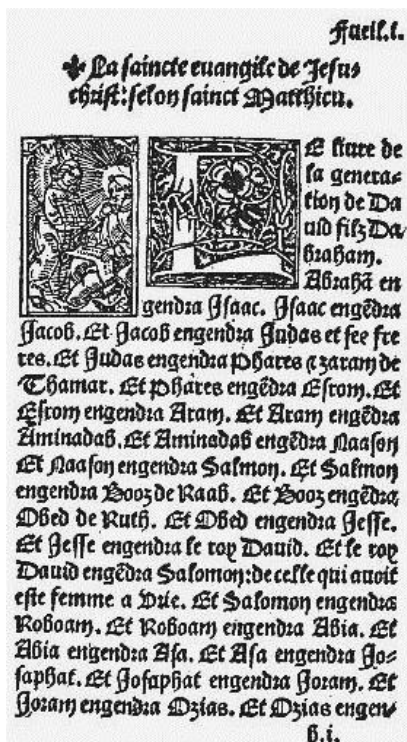 Fueil.i.
✤ La saincte euangile de Jesus
christ: selon sainct Matthieu.
LE liure de
la genera⸗
tion de Da
uid filz Da
braham.
Abrahã en
gendra Isaac. Isaac engẽdra
Jacob. Et Jacob engendra Judas et ses fre
res. Et Judas engendra Phares ⁊ zaram de
Thamar. Et Phares engẽdra Esrom. Et
Esrom engendra Aram. Et Aram engẽdra
Aminadab. Et Aminadab engẽdra Naason
Et Naason engendra Salmon. Et Salmon
engendra Booz de Raab. Et Booz engẽdra
Obed de Ruth. Et Obed engendra Jesse.
Et Jesse engendra le roy Dauid. Et le roy
Dauid engẽdra Salomon: de celle qui auoit
este femme a Vrie. Et Salomon engendra
Roboam. Et Roboam engendra Abia. Et
Abia engendra Asa. Et Asa engendra Jo⸗
saphat. Et Josaphat engendra Joram. Et
Joram engendra Ozias. Et Ozias engen⸗
b.i.